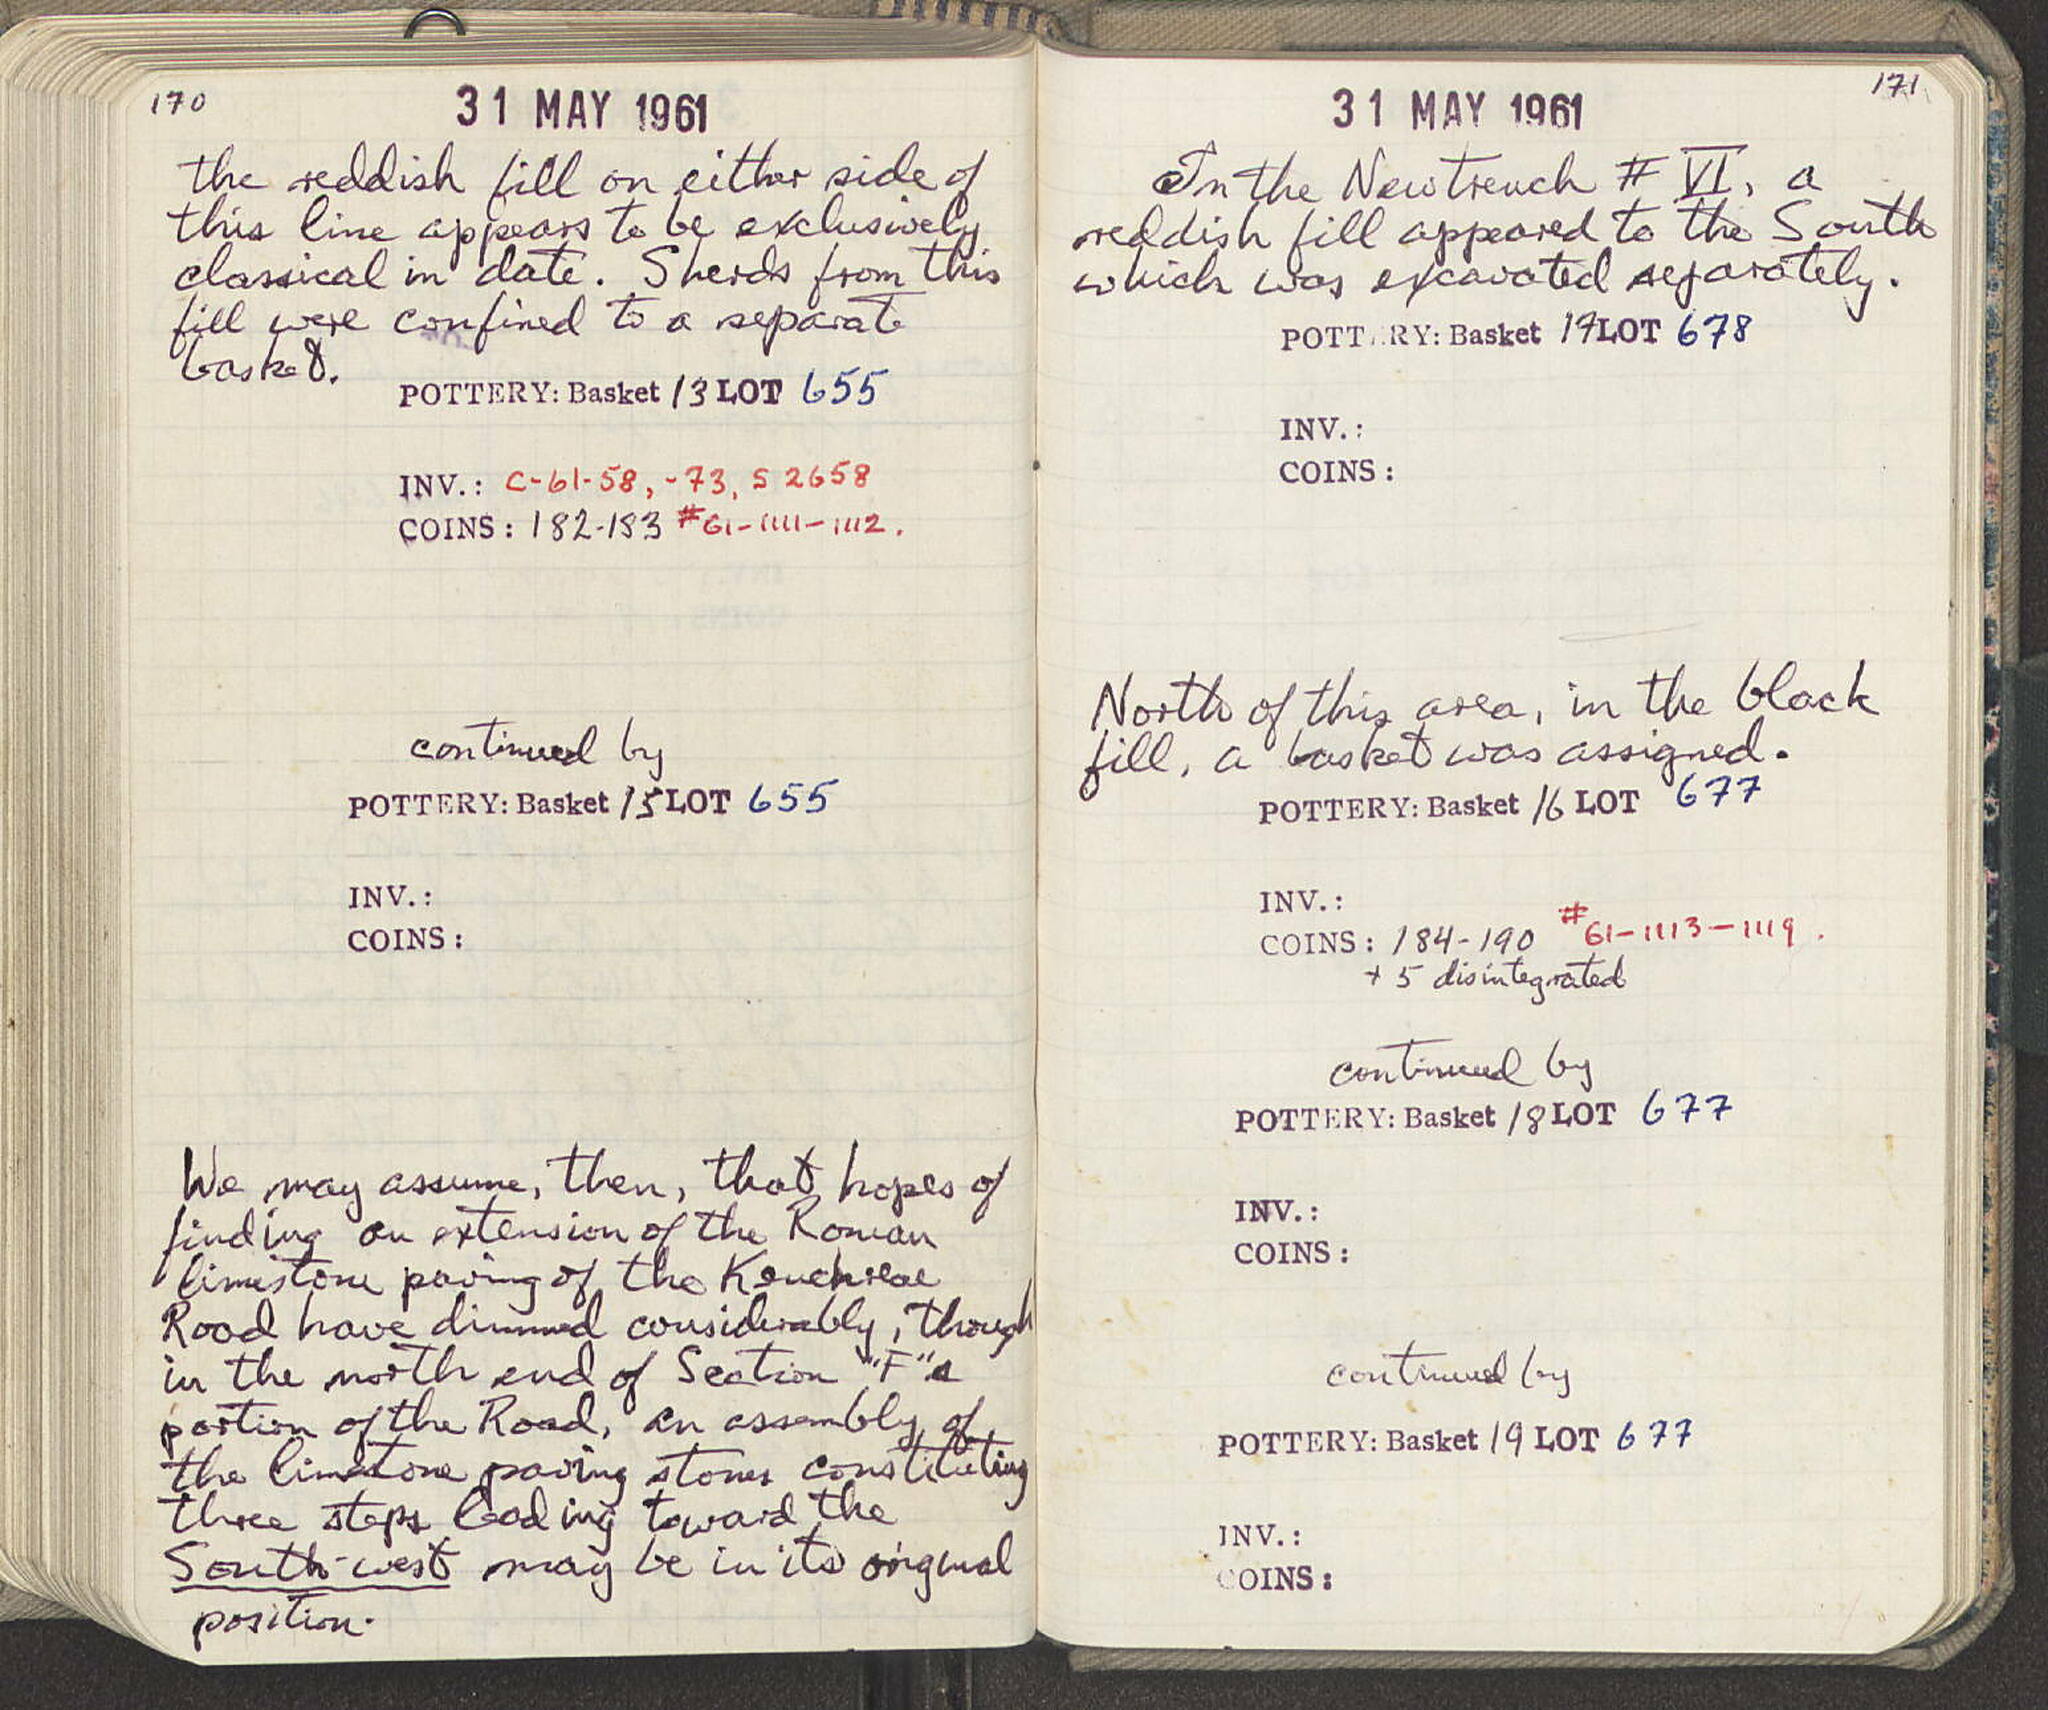 170
31 MAY 1961
the reddish fill on either side of
this line appears to be exclusively
classical in date. Sherds from this
fill were confined to a separate
basket.
POTTERY: Basket 13 LOT 655
INV.: C-61-58, -73, S 2658
COINS: 182-183 #61-1111-1112.
continued by
POTTERY: Basket 15 LOT 655
INV.:
COINS:
We may assume, then, that hopes of
finding an extension of the Roman
limestone paving of the Kenchreae
Road have dimmed considerably, though
in the north end of Section "F" a
portion of the Road, an assembly of
the limestone paving stones constituting
three steps leading toward the
South-west may be in its original
position.
171
31 MAY 1961
In the New trench # VI, a
reddish fill appeared to the South
which was excavated separately.
POTTERY: Basket 17 LOT 678
INV.:
COINS:
North of this area, in the black
fill, a basket was assigned.
POTTERY: Basket 16 LOT 677
INV.:
COINS: 184-190 #61-1113-1119.
+ 5 disintegrated
continued by
POTTERY: Basket 18 LOT 677
INV.:
COINS:
continued by
POTTERY: Basket 19 LOT 677
INV.:
COINS: